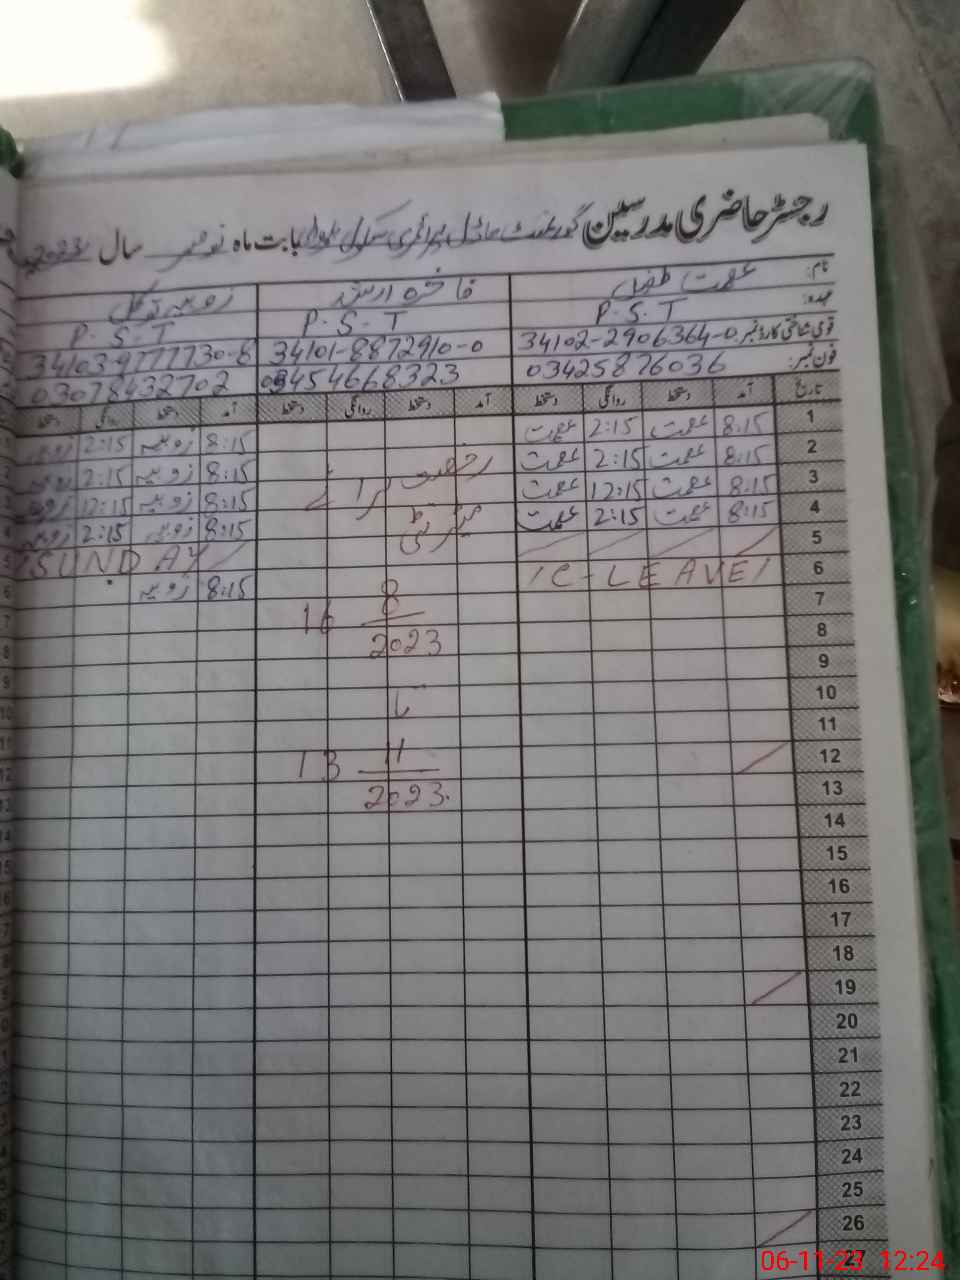 رجسٹر حاضری مدرسین گورنمنٹ ماڈل پرائمری سکول بابت ماہ نومبر سال 2023
نام: عصمت طفیل فاخرہ ارشد زوبیہ توکل
عہدہ: P.S.T P.S.T P.S.T
قومی شناختی کارڈ نمبر 34102-2906364-0 34101-8872910-0 34103-9777730-8
فون نمبر: 03425876036 03454668323 03078432702
تاریخ آمد دستخط روانگی دستخط آمد دستخط روانگی دستخط آمد دستخط روانگی دستخط
1 8:15 عصمت 2:15 عصمت 8:15 زوبیہ 2:15 زوبیہ
2 8:15 عصمت 2:15 عصمت رخصت 8:15 زوبیہ 2:15 زوبیہ
3 8:15 عصمت 12:15 عصمت برائے 8:15 زوبیہ 12:15 زوبیہ
4 8:15 عصمت 2:15 عصمت میٹرنٹی 8:15 زوبیہ 2:15 زوبیہ
5 SUNDAY
6 C-LEAVE 8:15 زوبیہ
7 16 8
8 2023
9
10 تا
11
12 13 11
13 2023
14
15
16
17
18
19
20
21
22
23
24
25
26
27
06-11-23 12:24